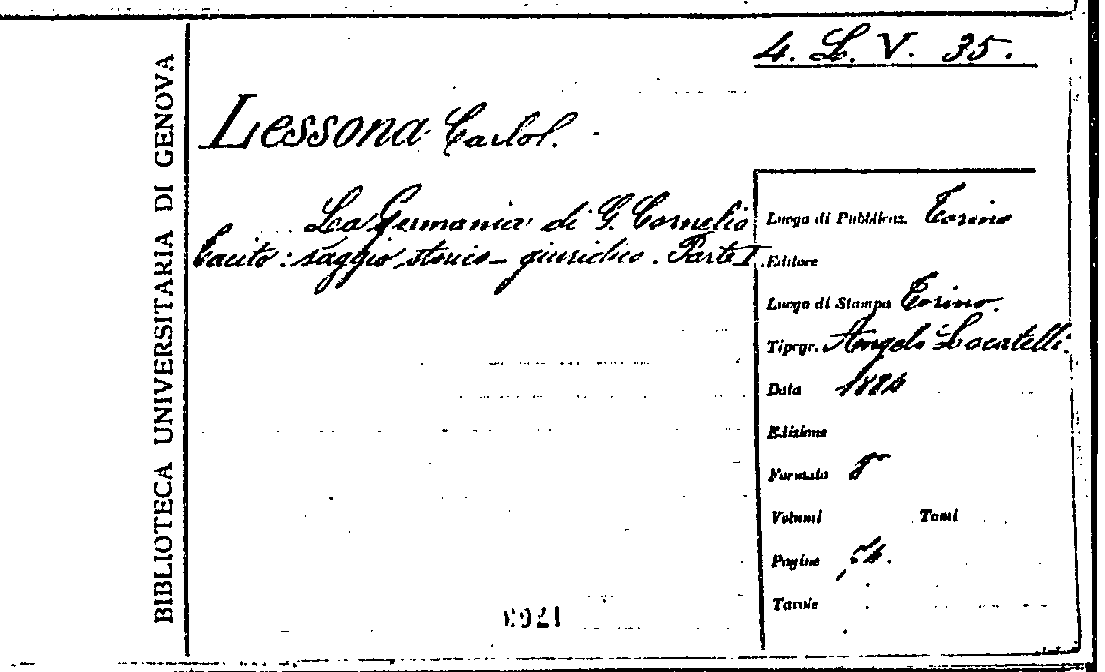 4. L. V. 35.
BIBLIOTECA UNIVERSITARIA DI GENOVA
Lessona Carlo.
La Germania di G. Cornelio
Tacito: saggio storico-giuridico. Parte I.
Luogo di Pubblicaz. Torino
Editore
Luogo di Stampa Torino.
Tipogr. Angelo Locatelli.
Data
Edizione
Formato 8°
Volumi Tomi
Pagine 54.
Tavole